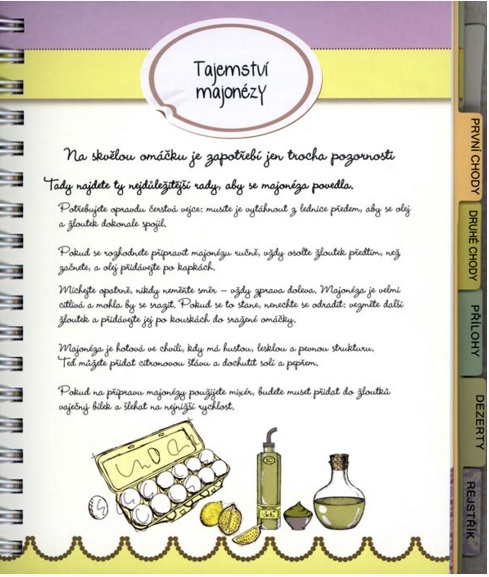 Tajemství
majonézy
Na skvělou omáčku je zapotřebí jen trocha pozornosti
Tady najdete ty nejdůležitější rady, aby se majonéza povedla.
Potřebujete opravdu čerstvá vejce: musíte je vytáhnout z lednice předem, aby se olej
a žloutek dokonale spojil.
Pokud se rozhodnete připravit majonézu ručně, vždy osolte žloutek předtím, než
začnete, a olej přidávejte po kapkách.
Míchejte opatrně, nikdy neměňte směr – vždy zprava doleva. Majonéza je velmi
citlivá a mohla by se srazit. Pokud se to stane, nenechte se odradit: vezměte další
žloutek a přidávejte jej po kouskách do sražené omáčky.
Majonéza je hotová ve chvíli, kdy má hustou, lesklou a pevnou strukturu.
Teď můžete přidat citronovou šťávu a dochutit solí a pepřem.
Pokud na přípravu majonézy použijete mixér, budete muset přidat do žloutků
vaječný bílek a šlehat na nejnižší rychlost.
PRVNÍ CHODY
DRUHÉ CHODY
PŘÍLOHY
DEZERTY
REJSTŘÍK